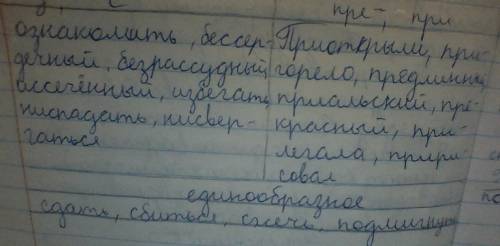 пре-, при
ознакомить, бессер-
дечный, безрассудный,
ссечённый, избегать
ниспадать, нисвер-
гаться
Приоткрыли, при-
горело, предлинный
приальский, пре-
красный, при-
легала, прири-
совал
единообразное
сдать, сбиться, сжечь, подмигнуть